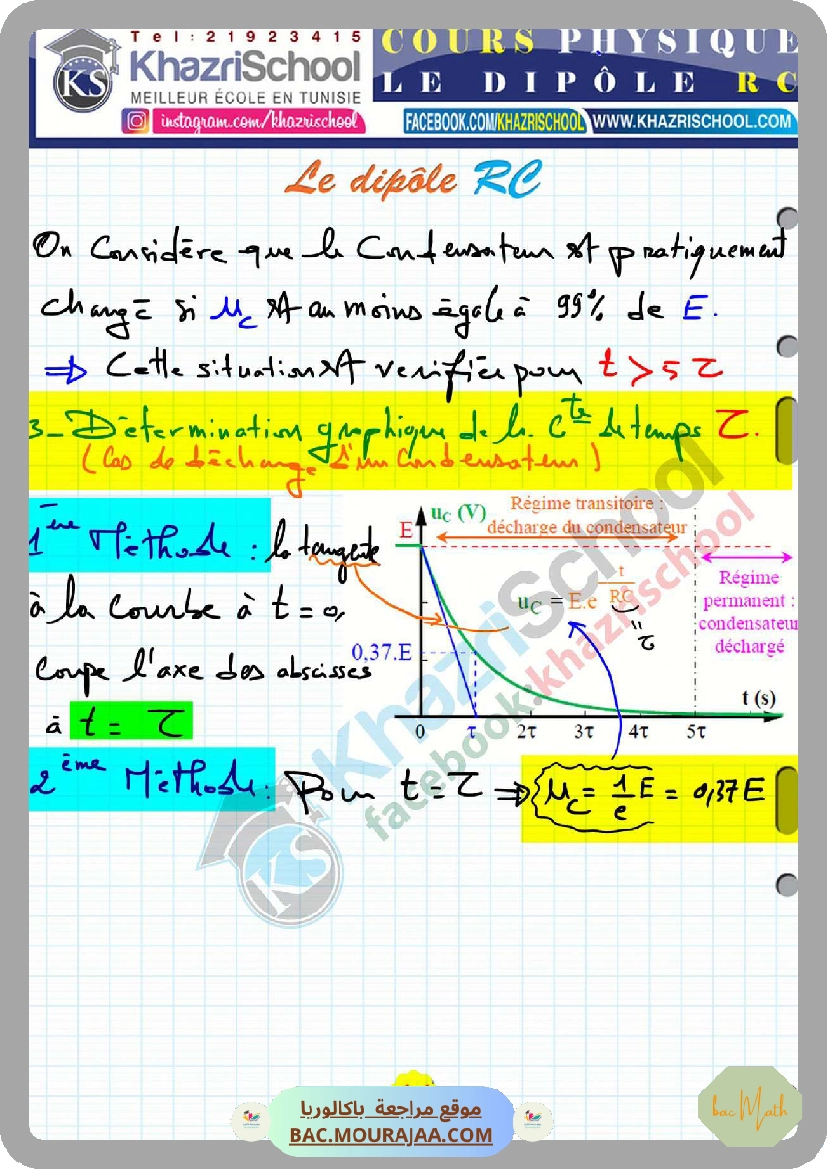 Tel:21923415
KS
KhazriSchool
MEILLEUR ÉCOLE EN TUNISIE
COURS PHYSIQUE
LE DIPÔLE RC
instagram.com/khazrischool
FACEBOOK.COM/KHAZRISCHOOL
WWW.KHAZRISCHOOL.COM
Le dipôle RC
On Considère que le Condensateur est pratiquement
chargé si Uc est au moins égale à 99% de E.
⇒ Cette situation est verifiée pour t > 5 τ
3_ Détermination graphique de la Cte de temps τ.
(Cas de décharge d'un Condensateur)
1ère Méthode : la tangente
à la courbe à t = 0,
coupe l'axe des abscisses
à t = τ
uC (V)
Régime transitoire :
décharge du condensateur
E
Régime
permanent :
condensateur
déchargé
uC = E.e
t
RC
"τ
0,37.E
t (s)
0 τ 2τ 3τ 4τ 5τ
2ème Méthode : Pour t = τ ⇒ Uc = 1/e E = 0,37 E
KhazriSchool
facebook.khazrischool
KS
موقع مراجعة باكالوريا
BAC.MOURAJAA.COM
bac Math